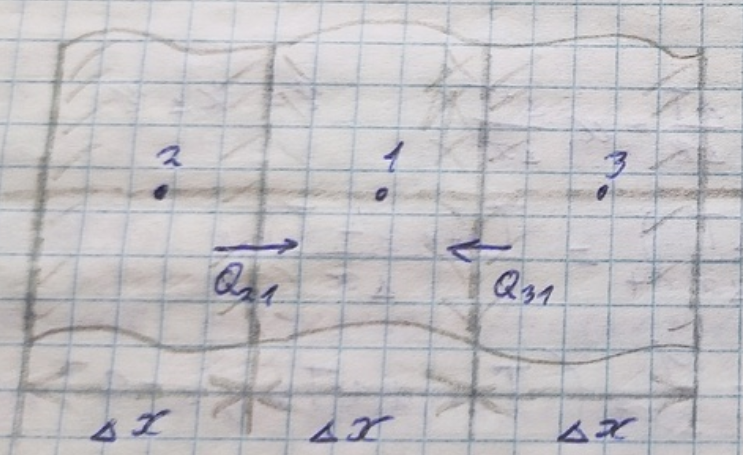 2 1 3
Q₂₁ Q₃₁
Δx Δx Δx